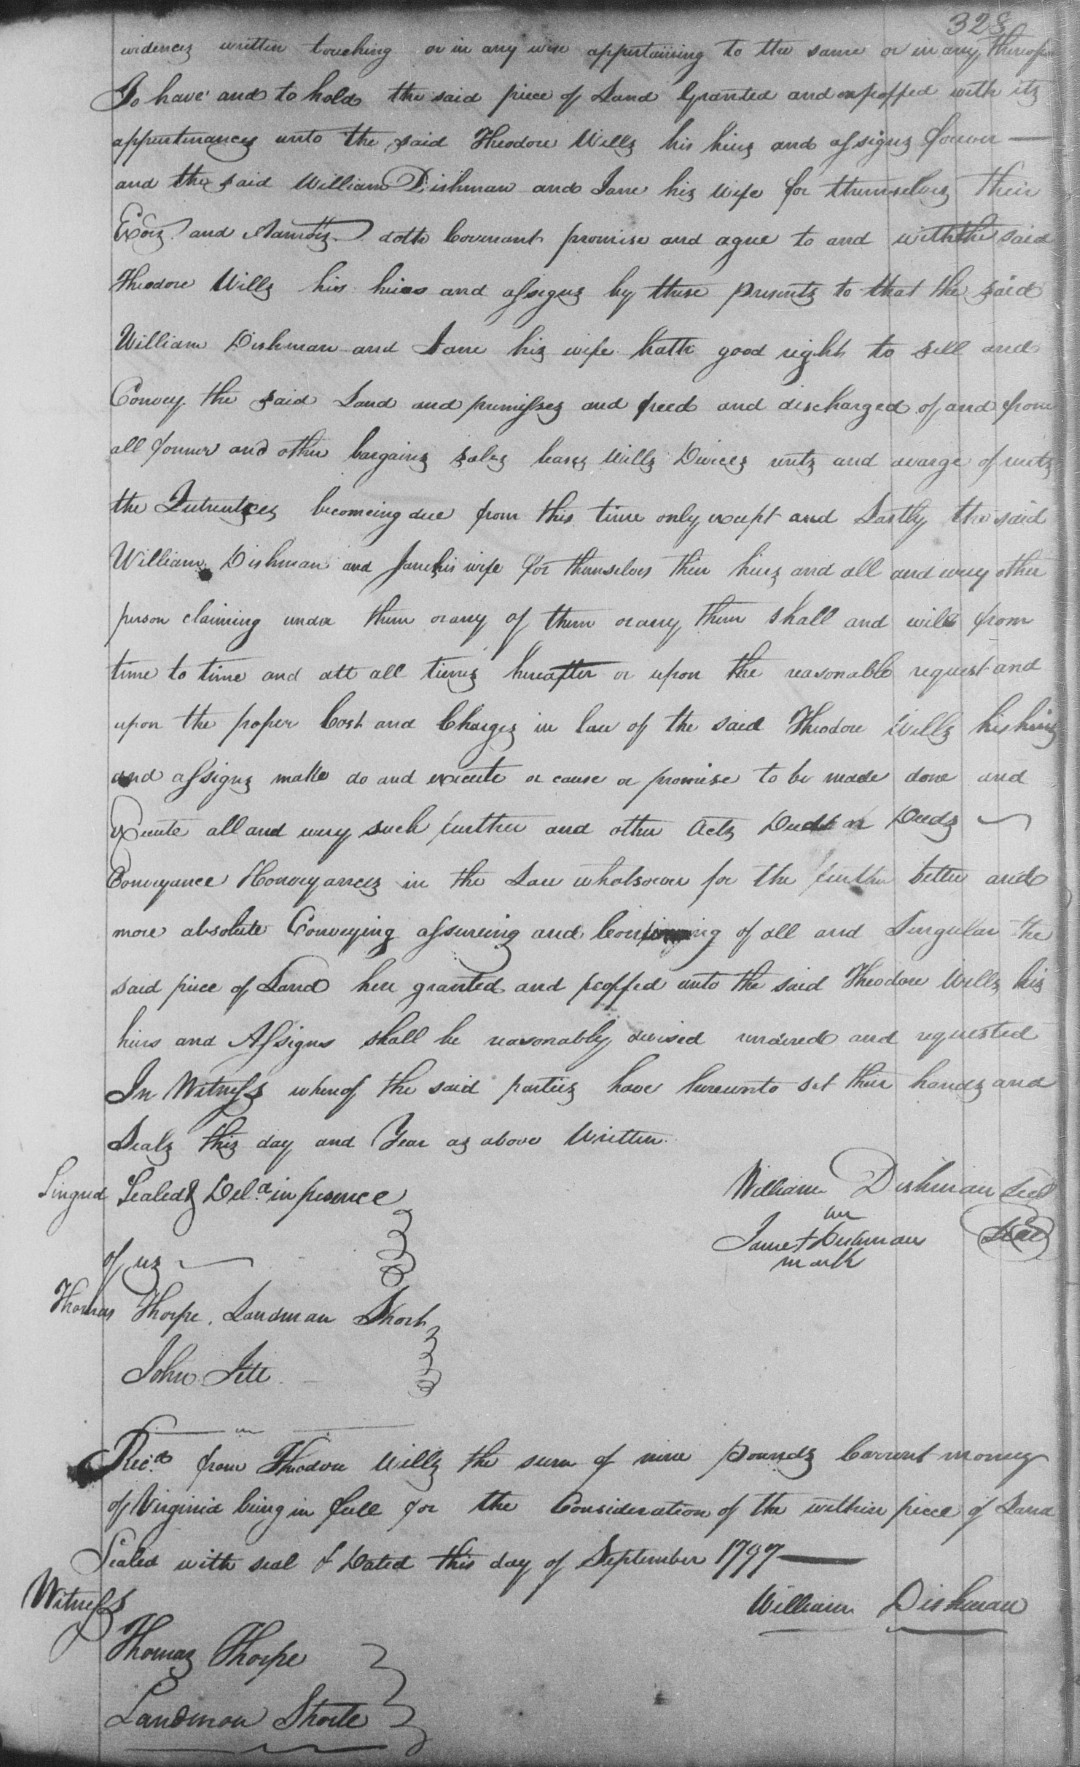 328
evidences written touching or in any wise appertaining to the same or in any thereof
To have and to hold the said piece of Land Granted and expossed with its
appurtenances unto the said Theodore Wills his heirs and assigns forever —
and the said William Dishman and Jane his wife for themselves their
Exors and Admors doth Covenant promise and agree to and with the said
Theodore Wills his heirs and assigns by these presents to that the said
William Dishman and Jane his wife hath good right to sell and
Convey the said Land and premisses and freed and discharged of and from
all former and other bargains sales leases Wills Divices rents and avarge of rents
the becomeing due from this time only except and Lastly the said
William Dishman and Jane his wife for themselves their heirs and all and every other
person claiming under them or any of them or any them shall and will from
time to time and att all times hereafter or upon the reasonable request and
upon the proper Cost and Charges in law of the said Theodore Wills his heirs
and assigns make do and execute or cause or promise to be made done and
Execute all and every such further and other Acts Deeds or Deeds —
Conveyance Conveyances in the Law whatsoever for the further better and
more absolute Conveying assureing and of all and Singular the
said piece of Land here granted and peoffed unto the said Theodore Wills his
heirs and Assigns shall be reasonably devised and requested
In Witness whereof the said parties have hereunto set their hands and
Seals this day and Year as above Written
Singned Sealed & Deld in presence
of us —
William Dishman Seal
her
Jane + Dishman Seal
mark
Thomas Thorpe, Landman Short
John Jett
Recd from Theodore Wills the sum of nine pounds Current money
of Virginia being in full for the Consideration of the within piece of Land
Sealed with seal & Dated this day of September 1797 —
Witness
William Dishman
Thomas Thorpe
Landmon Shorte